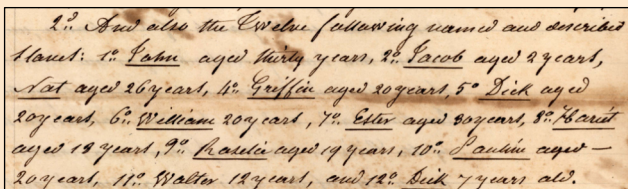 2º And also the Twelve following named and described
slaves: 1º John aged thirty years, 2º Jacob aged 2 years,
Nat aged 26 years, 4º Griffin aged 20 years, 5º Dick aged
20 years, 6º William 20 years, 7º Ester aged 30 years, 8º Hariet
aged 18 years, 9º Rosalie aged 19 years, 10º Pauline aged —
20 years, 11º Walter 12 years, and 12º Dick 7 years old.